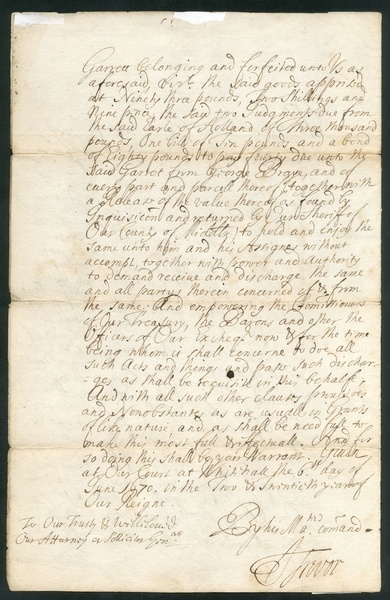 Garrett belonging and forfeited unto Us as
aforesaid, vizt. the said goods apprized
at Ninety three pounds, Two Shillings and
Nine pence, the said two Judgments due from
the said Earle of Holland of three thousand
pounds, One bill of Six pounds, and a bond
of Eighty pounds to pay fourty due unto the
said Garret from George and of
every part and parcell thereof, together with
a release of the value thereof as found by
Inquisicon and returned by Our Sheriff of
Our County of Middx, to hold and enjoy the
same unto him and his Assignes without
accompt, together with power and Authority
to demand receive and discharge the same
and all partyes therein concerned of & from
the same. And empowring the Comissioners
of Our Treasury, the Barons and other the
Officers of Our Excheqr now & for the time
being whom it shall concerne to doe all
such Acts and things and pass such dischar-
-ges as shall be requisitt in this behalfe,
And with all such other clauses
and Nonobstantes as are usuall in Grants
of like nature, and as shall be needfull to
make this most full & effectuall. And for
so doing this shall be your Warrant. Given
at Our Court at Whitehall the 6th day of
June 1670. in the Two & Twentieth yeare of
Our Reigne.
To Our Trusty & Welbeloved
Our Atturney or Sollicitor Genall
By his Mats comand
J Trevor